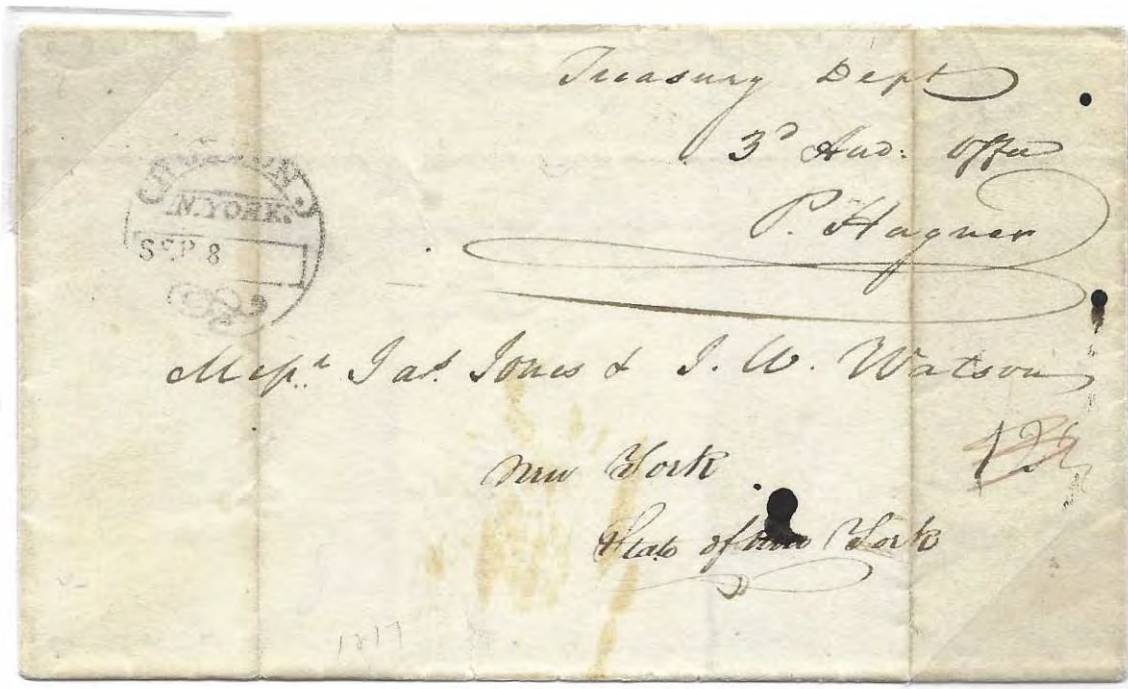 Treasury Dept
3ᵈ Aud: Office
P. Hagner
HUDSON
N.YORK.
SEP 8
Messʳˢ Jaˢ. Jones & J. W. Watson
12½
New York
State of New York
1817